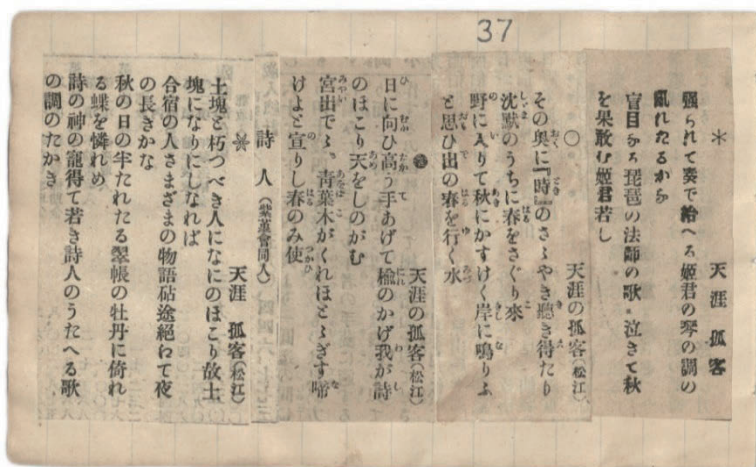 37
＊
天涯孤客
强られて奏で給へる姬君の琴の調の
亂れたるから
盲目なる琵琶の法師の歌に泣きて秋
を果敢む姬君若し
○
天涯の孤客(松江)
その奥に『時』のさゝやき聽き得たり
沈默のうちに春をさぐり來
野に入りて秋にかすけく岸に鳴りふ
と思ひ出の春を行く水
天涯の孤客(松江)
日に向ひ高う手あげて楡のかげ我が詩
のほこり天をしのがむ
宮出でゝ、靑葉木がくれほとゝぎす啼
けよと宣りし春のみ使
詩人(紫菫會同人)
天涯孤客(松江)
土塊と朽つべき人になにのほこり故土
塊になりにしなれば
合宿の人さまざまの物語砧途絕ねて夜
の長きかな
秋の日の半たれたる翠帳の牡丹に倚れ
る蝶を憐れめ
詩の神の寵得て若き詩人のうたへる歌
の調のたかき